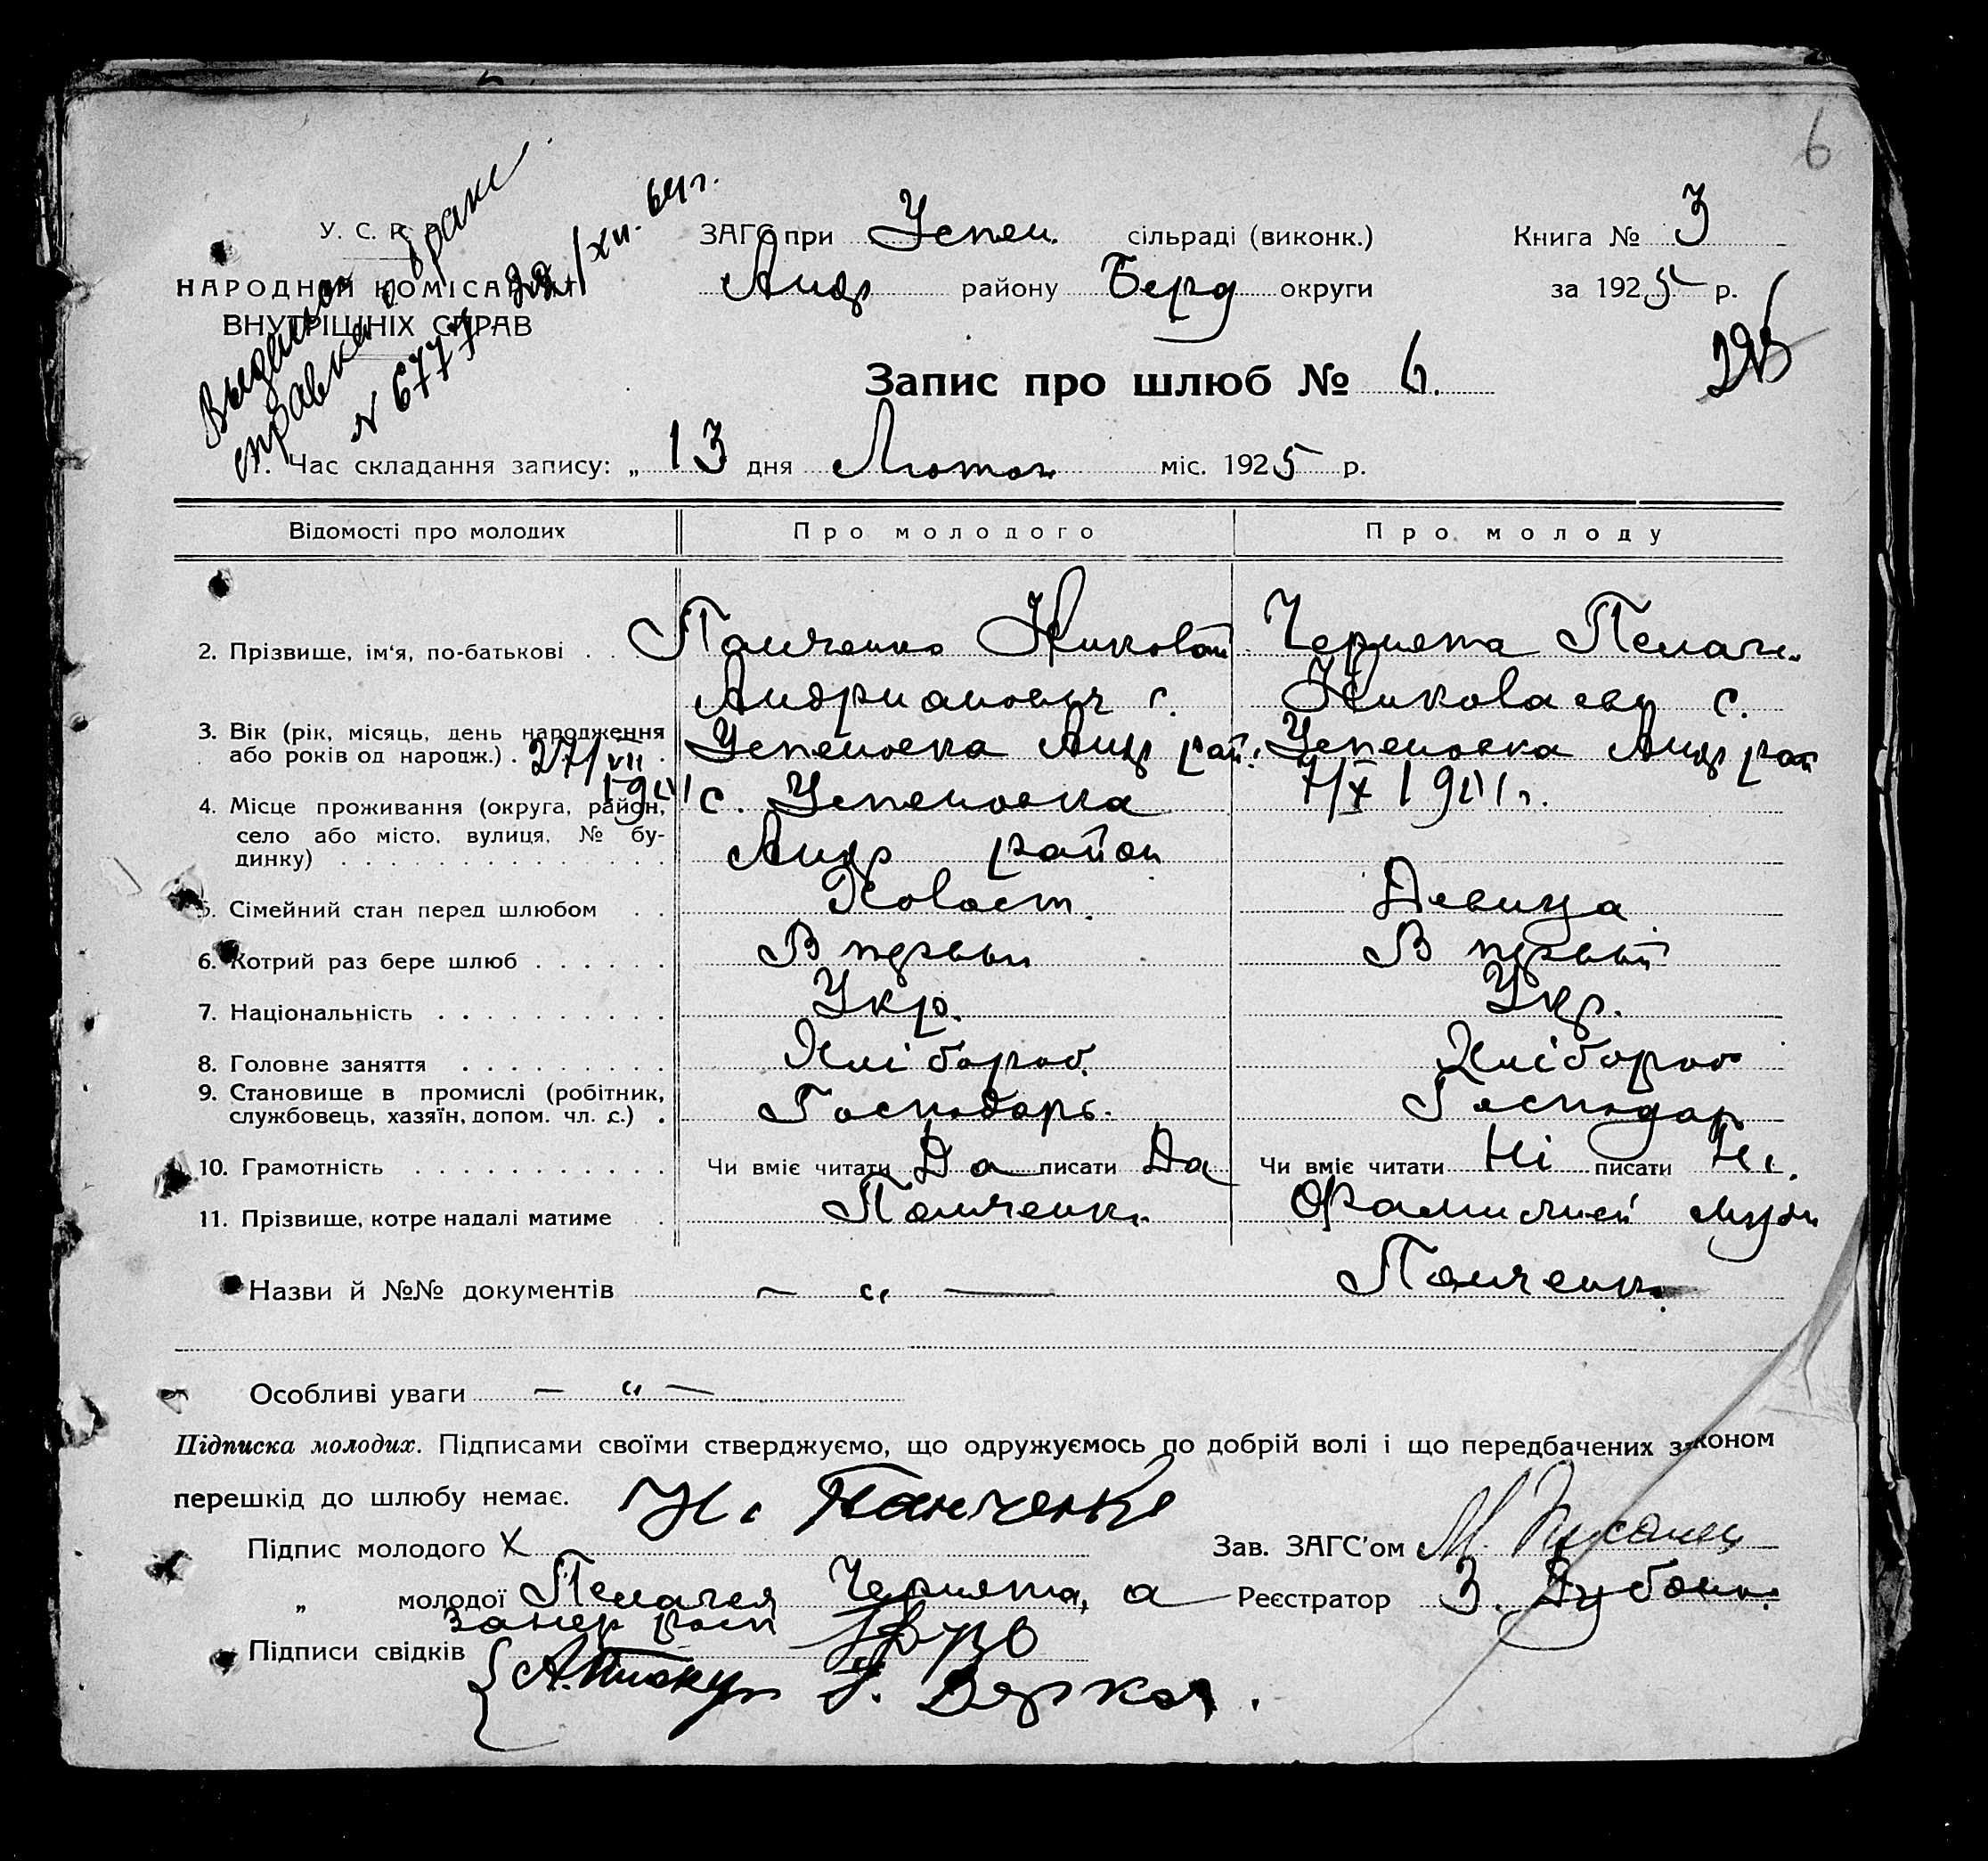 6
Выдана
справка о браке
N 6777 32/XII. 64 г.
У. С. Р. Р.
НАРОДНІЙ КОМІСАРІЯТ
ВНУТРІШНІХ СПРАВ
ЗАГС при Успен. сільраді (виконк.)
Андр району Берд округи
Книга № 3
за 1925 р.
Запис про шлюб № 6.
1. Час складання запису: „ 13 дня Лютого міс. 1925 р.
Відомості про молодих Про молодого Про молоду
2. Прізвище, ім'я, по-батькові . . Панченко Николай Чернята Пелаге.
Андрианович с. Николаевн с.
3. Вік (рік, місяць, день народження
або років од народж.) . 27/VII Успеновка Андр рай. Успеновка Андр рай
4. Місце проживання (округа, район, с. Успеновка
село або місто, вулиця, № бу-
динку) . . . Андр район
5. Сімейний стан перед шлюбом . . Холост. Девица
6. Котрий раз бере шлюб . . . . . . В первый В первый
7. Національність . . . . . . . . . . Укр. Укр.
8. Головне заняття . . . . . . . . . Хлібороб. Хлібороб
9. Становище в промислі (робітник,
службовець, хазяїн, допом. чл. с.) . Господарь. Господар
10. Грамотність . . . . . . . . . . . Чи вміє читати Да писати Да Чи вміє читати Ні писати Ні.
11. Прізвище, котре надалі матиме . . Панченко Фамилией мужа
Назви й №№ документів — „ — Панченко
Особливі уваги — „ —
Підписка молодих. Підписами своїми стверджуємо, що одружуємось по добрій волі і що передбачених законом
перешкід до шлюбу немає. Н. Панченко
Підпис молодого X Зав. ЗАГС'ом М.
„ молодої Пелагея Чернята, а Реєстратор З.
Підписи свідків